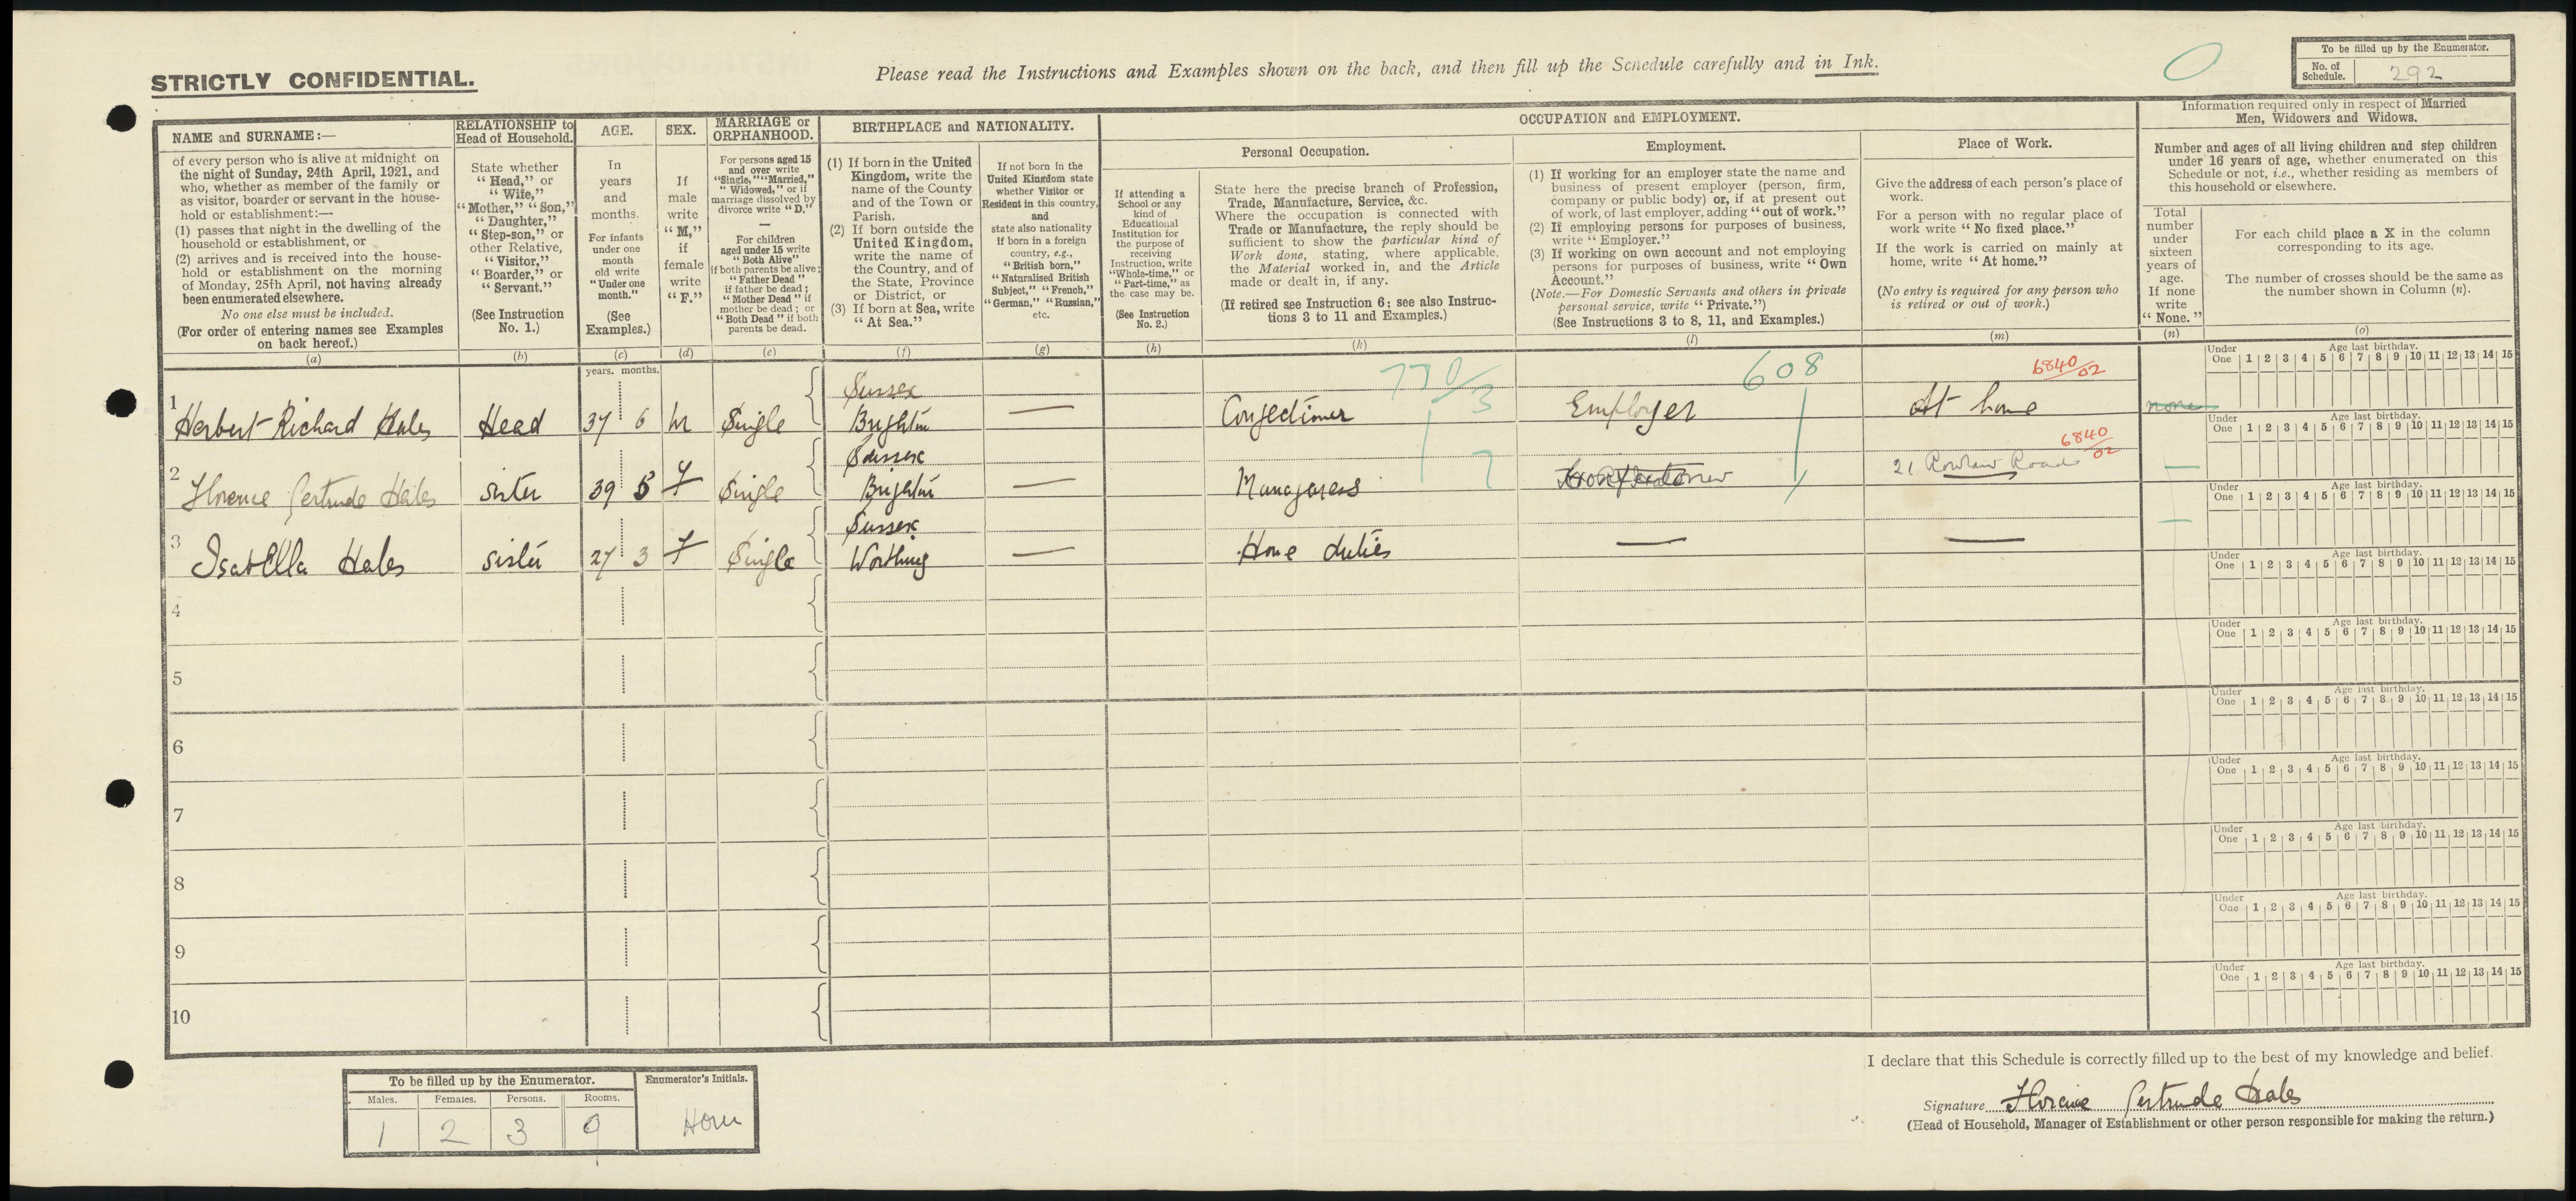 STRICTLY CONFIDENTIAL.
Please read the Instructions and Examples shown on the back, and then fill up the Schedule carefully and in Ink.
To be filled up by the Enumerator.
No. of Schedule. 292
NAME and SURNAME:—
of every person who is alive at midnight on
the night of Sunday, 24th April, 1921, and
who, whether as member of the family or
as visitor, boarder or servant in the house-
hold or establishment:—
(1) passes that night in the dwelling of the
household or establishment, or
(2) arrives and is received into the house-
hold or establishment on the morning
of Monday, 25th April, not having already
been enumerated elsewhere.
No one else must be included.
(For order of entering names see Examples
on back hereof.)
(a)
RELATIONSHIP to
Head of Household.
State whether
"Head," or
"Wife,"
"Mother," "Son,"
"Daughter,"
"Step-son," or
other Relative,
"Visitor,"
"Boarder," or
"Servant."
(See Instruction
No. 1.)
(b)
AGE.
In
years
and
months.
For infants
under one
month
old write
"Under one
month."
(See
Examples.)
(c)
SEX.
If
male
write
"M,"
if
female
write
"F."
(d)
MARRIAGE or
ORPHANHOOD.
For persons aged 15
and over write
"Single," "Married,"
"Widowed," or if
marriage dissolved by
divorce write "D."
—
For children
aged under 15 write
"Both Alive"
if both parents be alive;
"Father Dead"
if father be dead;
"Mother Dead" if
mother be dead; or
"Both Dead" if both
parents be dead.
(e)
BIRTHPLACE and NATIONALITY.
(1) If born in the United
Kingdom, write the
name of the County
and of the Town or
Parish.
(2) If born outside the
United Kingdom,
write the name of
the Country, and of
the State, Province
or District, or
(3) If born at Sea, write
"At Sea."
(f)
If not born in the
United Kingdom state
whether Visitor or
Resident in this country,
and
state also nationality
if born in a foreign
country, e.g.,
"British born,"
"Naturalised British
Subject," "French,"
"German," "Russian,"
etc.
(g)
OCCUPATION and EMPLOYMENT.
If attending a
School or any
kind of
Educational
Institution for
the purpose of
receiving
Instruction, write
"Whole-time," or
"Part-time," as
the case may be.
(See Instruction
No. 2.)
(h)
Personal Occupation.
State here the precise branch of Profession,
Trade, Manufacture, Service, &c.
Where the occupation is connected with
Trade or Manufacture, the reply should be
sufficient to show the particular kind of
Work done, stating, where applicable,
the Material worked in, and the Article
made or dealt in, if any.
(If retired see Instruction 6; see also Instruc-
tions 3 to 11 and Examples.)
(k)
Employment.
(1) If working for an employer state the name and
business of present employer (person, firm,
company or public body) or, if at present out
of work, of last employer, adding "out of work."
(2) If employing persons for purposes of business,
write "Employer."
(3) If working on own account and not employing
persons for purposes of business, write "Own
Account."
(Note.—For Domestic Servants and others in private
personal service, write "Private.")
(See Instructions 3 to 8, 11, and Examples.)
(l)
Place of Work.
Give the address of each person's place of
work.
For a person with no regular place of
work write "No fixed place."
If the work is carried on mainly at
home, write "At home."
(No entry is required for any person who
is retired or out of work.)
(m)
Information required only in respect of Married
Men, Widowers and Widows.
Number and ages of all living children and step children
under 16 years of age, whether enumerated on this
Schedule or not, i.e., whether residing as members of
this household or elsewhere.
Total
number
under
sixteen
years of
age.
If none
write
"None."
(n)
For each child place a X in the column
corresponding to its age.
The number of crosses should be the same as
the number shown in Column (n).
(o)
years. months.
Under One Age last birthday. 1 2 3 4 5 6 7 8 9 10 11 12 13 14 15
770/3 608 6840/02
1 Herbert Richard Hales Head 37 6 M Single Sussex Brighton — Confectioner Employer At home none
Under One Age last birthday. 1 2 3 4 5 6 7 8 9 10 11 12 13 14 15
7 6840/02
2 Florence Gertrude Hales Sister 39 5 F Single Sussex Brighton — Manageress 21 Road —
Under One Age last birthday. 1 2 3 4 5 6 7 8 9 10 11 12 13 14 15
3 Isabella Hales Sister 27 3 F Single Sussex Worthing — Home duties — — —
Under One Age last birthday. 1 2 3 4 5 6 7 8 9 10 11 12 13 14 15
4
Under One Age last birthday. 1 2 3 4 5 6 7 8 9 10 11 12 13 14 15
5
Under One Age last birthday. 1 2 3 4 5 6 7 8 9 10 11 12 13 14 15
6
Under One Age last birthday. 1 2 3 4 5 6 7 8 9 10 11 12 13 14 15
7
Under One Age last birthday. 1 2 3 4 5 6 7 8 9 10 11 12 13 14 15
8
Under One Age last birthday. 1 2 3 4 5 6 7 8 9 10 11 12 13 14 15
9
Under One Age last birthday. 1 2 3 4 5 6 7 8 9 10 11 12 13 14 15
10
I declare that this Schedule is correctly filled up to the best of my knowledge and belief.
Signature Florence Gertrude Hales
(Head of Household, Manager of Establishment or other person responsible for making the return.)
To be filled up by the Enumerator.
Enumerator's Initials.
Males. Females. Persons. Rooms.
1 2 3 9